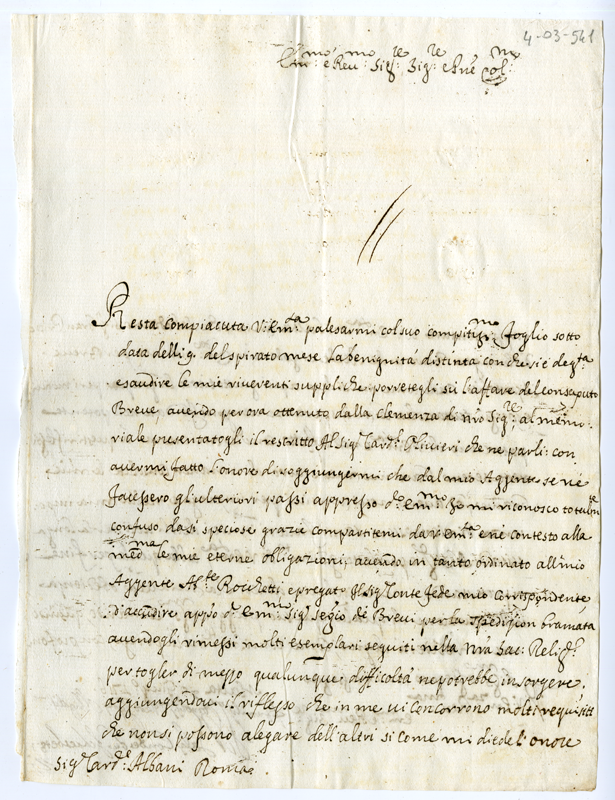 4-03-541
Em:mo e Rev:mo Sig:re Sig:re e Pne Col:mo
Resta compiaciuta V: Em:za palesarmi col suo compitiss:mo foglio sotto
data delli 9. del spirato mese La benignità distinta con che si è deg:ta
esaudire le mie riverenti suppliche porretegli sù l'affare del consaputo
Breve, avendo per ora ottenuto dalla Clemenza di nro Sig:re al memo:
riale presentatogli il rescritto Al Sig:r Card:l Olivieri che ne parli: con
avermi fatto l'onore di soggiungermi che dal mio Aggente se ne
facessero gl'ulteriori passi appresso d:o Em:mo Se mi riconosco tottalm:te
confuso da sì speciose grazie compartitemi da V: Em:za e ne contesto alla
med:ma le mie eterne obligazioni, avendo in tanto ordinato all'mio
Aggente Ab:te Rocchetti, e pregato Il Sig:r Conte fede mio Corrispondente
d'accudire app:o d:o Em:mo Sig:r Segrio de Brevi per la spedizion bramata
avendogli rimessi molti esemplari seguiti nella nra Sac: Relig:e
per togler di mezzo qualunque difficoltà ne potrebbe insorgere,
aggiungendovi il riflesso che in me vi concorrono molti requisiti
che non si possono alegare dell'altri si come mi diede l'onore
Sig:r Card:le Albani Roma